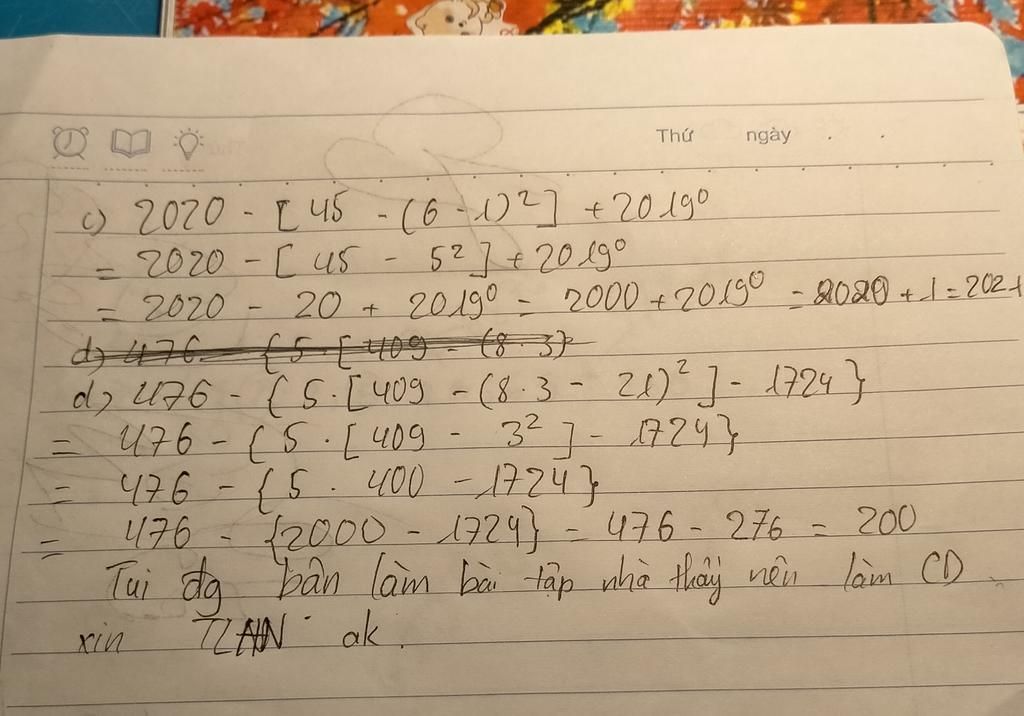 Thứ ngày . .
c) 2020 - [ 45 - (6 - 1)² ] + 2019⁰
= 2020 - [ 45 - 5² ] + 2019⁰
= 2020 - 20 + 2019⁰ = 2000 + 2019⁰ = 2020 + 1 = 2021
d) 476 - { 5 . [ 409 - (8 . 3)
d) 476 - { 5 . [ 409 - (8 . 3 - 21)² ] - 1724 }
= 476 - { 5 . [ 409 - 3² ] - 1724 }
= 476 - { 5 . 400 - 1724 }
= 476 - {2000 - 1724} = 476 - 276 = 200
Tui đg bân làm bài tập nhà thầy nên làm CD
xin TLHN ak.